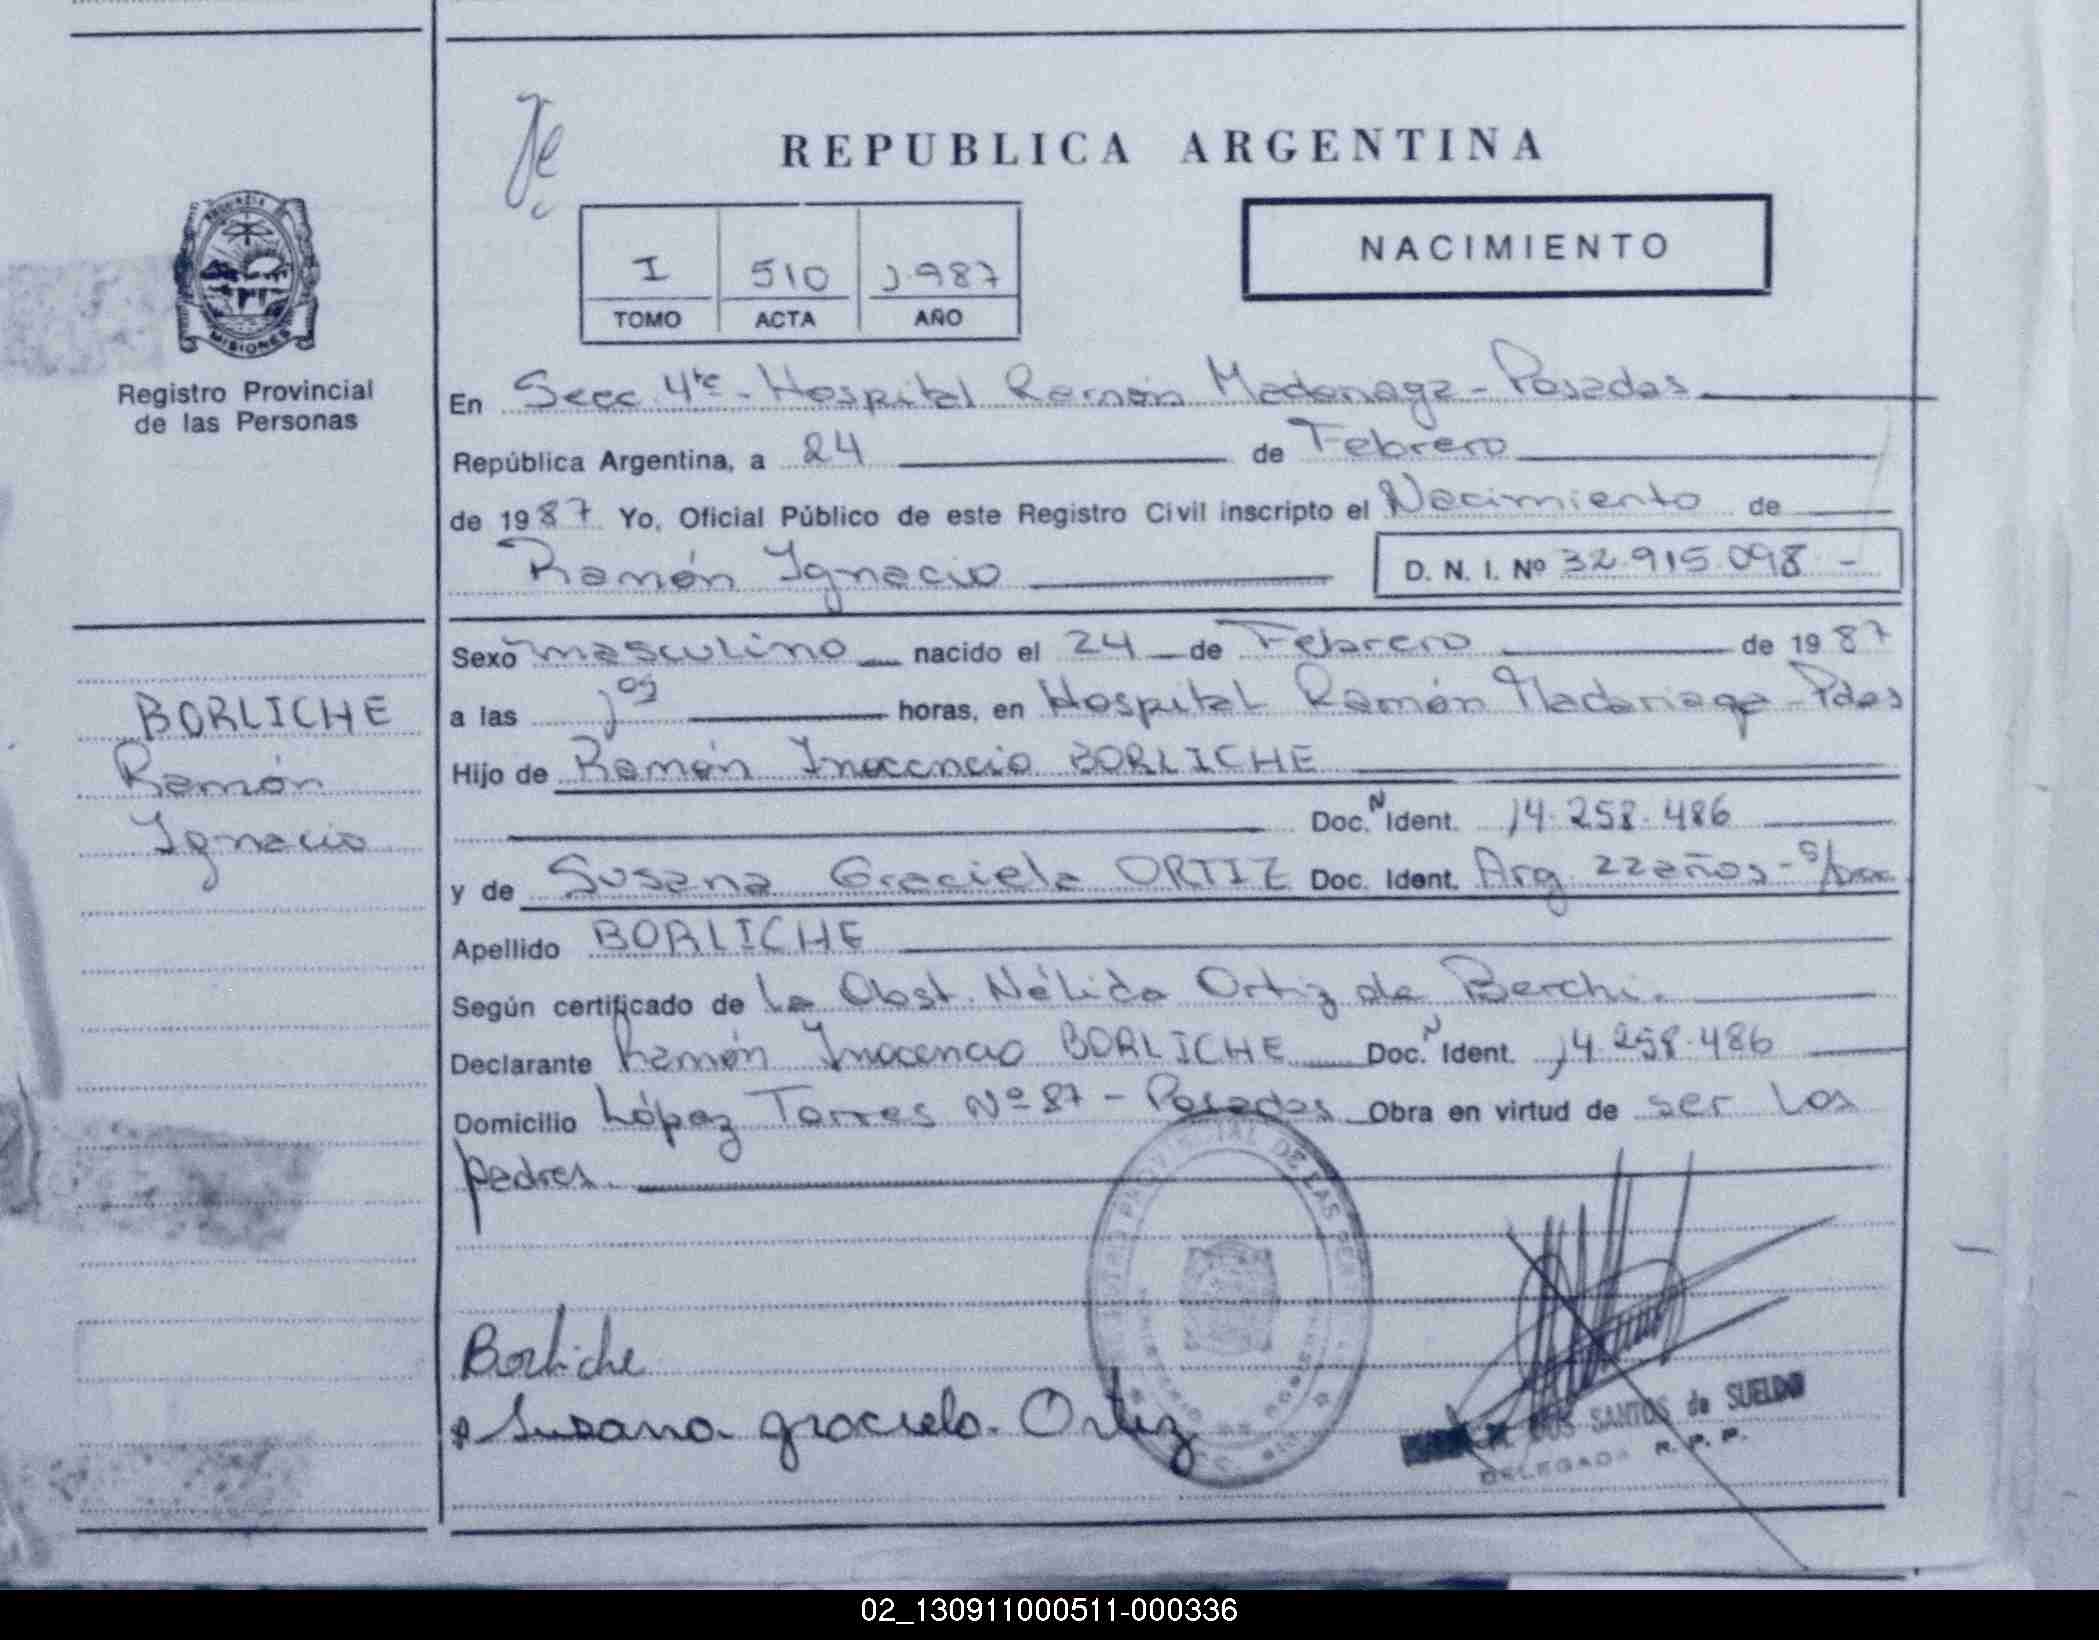 REPUBLICA ARGENTINA
NACIMIENTO
I 510 1.987
TOMO ACTA AÑO
PROVINCIA
MISIONES
Registro Provincial
de las Personas
En Secc. 4ta - Hospital Ramón Madariaga - Posadas
República Argentina, a 24 de Febrero
de 1987 Yo, Oficial Público de este Registro Civil inscripto el Nacimiento de
Ramón Ignacio D. N. I. Nº 32.915.098 -
Sexo masculino nacido el 24 de Febrero de 1987
a las horas, en Hospital Ramón Madariaga - Pdas
BORLICHE
Ramón
Ignacio
Hijo de Ramón Inocencio BORLICHE
Doc. N Ident. 14.258.486
y de Susana Graciela ORTIZ Doc. Ident. Arg. 22 años - s/Doc.
Apellido BORLICHE
Según certificado de la Obst. Nélida Ortiz de Berchi.
Declarante Ramón Inocencio BORLICHE Doc. N Ident. 14.258.486
Domicilio López Torres Nº 87 - Posadas Obra en virtud de ser los
padres.
PROVINCIAL DE LAS
Borliche
Susana graciela. Ortiz
DOS SANTOS de SUELDO
DELEGADA R. P. P.
02_130911000511-000336